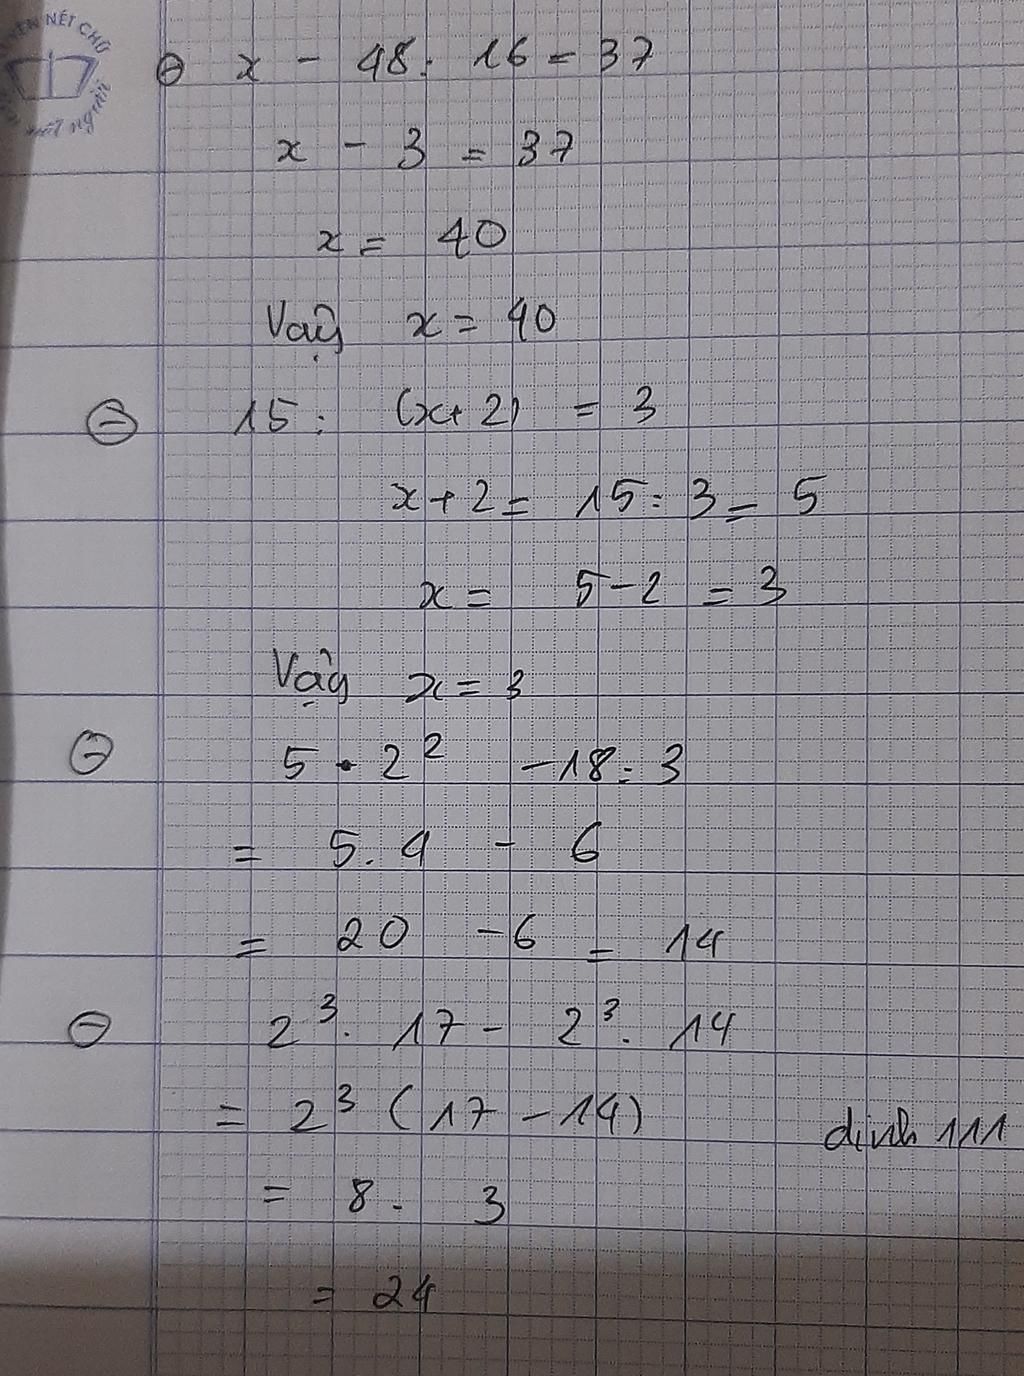 NÉT CHỮ
nết người
⊖ x - 48 : 16 = 37
x - 3 = 37
x = 40
Vậy x = 40
⊖ 15 : (x+2) = 3
x + 2 = 15 : 3 = 5
x = 5 - 2 = 3
Vậy x = 3
⊖ 5 . 2² - 18 : 3
= 5 . 4 - 6
= 20 - 6 = 14
⊖ 2³ . 17 - 2³ . 14
= 2³ (17 - 14)
dinh 111
= 8 . 3
= 24